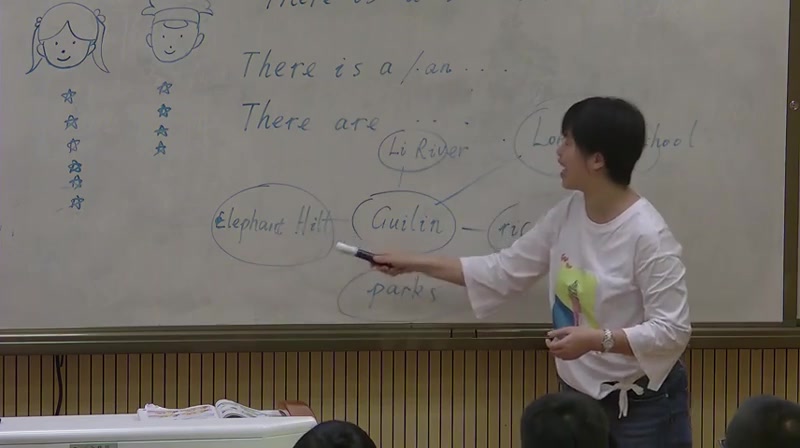 There is a
There is a / an ...
There are ...
Li River
hool
Elephant Hill
Guilin
ric
parks